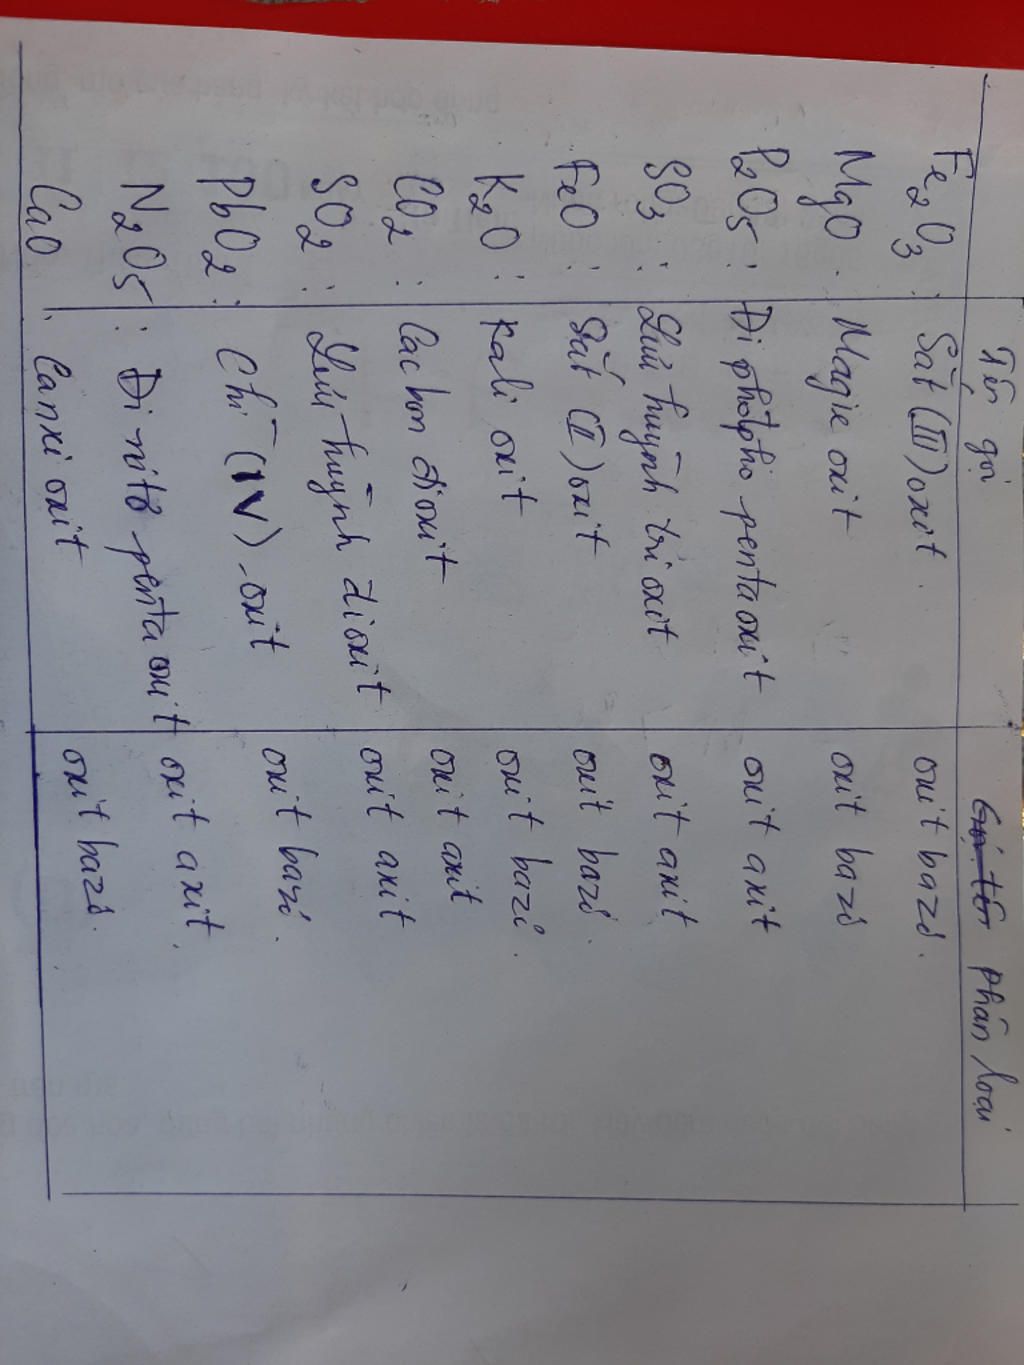 Tên gọi | phân loại
Fe2O3 : Sắt (III) oxit. oxit bazơ.
MgO : Magie oxit oxit bazơ
P2O5 : Đi photpho pentaoxit oxit axit
SO3 : Lưu huỳnh tri oxit oxit axit
FeO : Sắt (II) oxit oxit bazơ.
K2O : Kali oxit oxit bazơ.
CO2 : Cacbon đioxit oxit axit
SO2 : Lưu huỳnh đi oxit oxit axit
PbO2 : Chì (IV) - oxit oxit bazơ.
N2O5 : Đi nitơ penta oxit oxit axit.
CaO : Canxi oxit oxit bazơ.